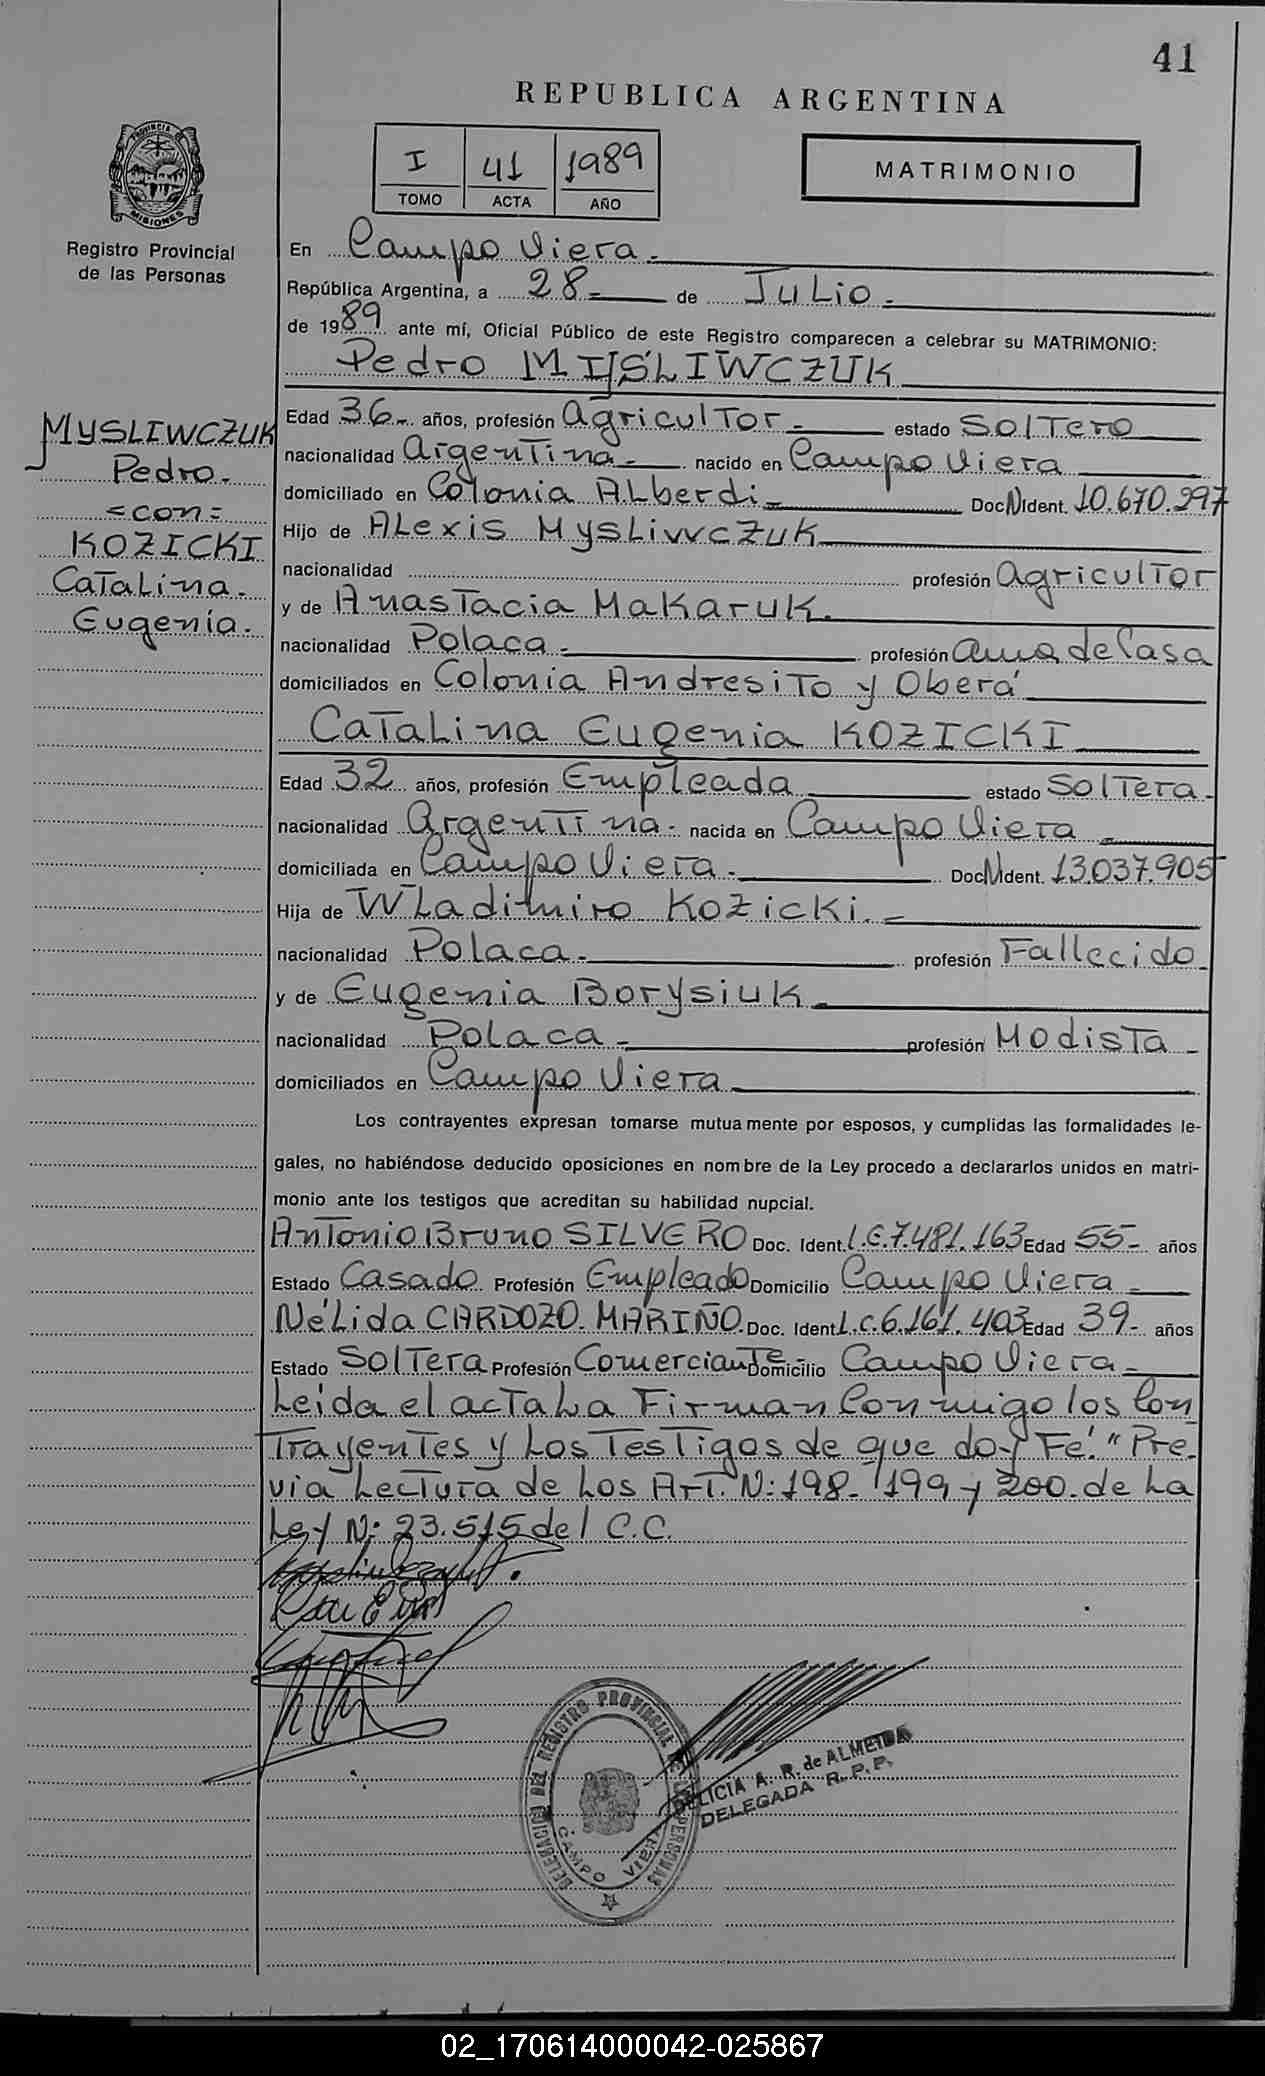 41
REPUBLICA ARGENTINA
PROVINCIA DE
MISIONES
Registro Provincial
de las Personas
I 41 1989
TOMO ACTA AÑO
MATRIMONIO
En Campo Viera.
República Argentina, a 28 de Julio.
de 1989 ante mí, Oficial Público de este Registro comparecen a celebrar su MATRIMONIO:
Pedro MYSLIWCZUK
MYSLIWCZUK
Pedro.
=con=
KOZICKI
Catalina.
Eugenia.
Edad 36 años, profesión Agricultor estado Soltero
nacionalidad Argentina nacido en Campo Viera
domiciliado en Colonia Alberdi Doc N Ident. 10.670.297
Hijo de Alexis Mysliwczuk
nacionalidad profesión Agricultor
y de Anastacia Makaruk.
nacionalidad Polaca profesión ama de Casa
domiciliados en Colonia Andresito y Oberá
Catalina Eugenia KOZICKI
Edad 32 años, profesión Empleada estado Soltera
nacionalidad Argentina nacida en Campo Viera
domiciliada en Campo Viera Doc N Ident. 13.037.905
Hija de Wladimiro Kozicki
nacionalidad Polaca profesión Fallecido
y de Eugenia Borysiuk
nacionalidad Polaca profesión Modista
domiciliados en Campo Viera
Los contrayentes expresan tomarse mutuamente por esposos, y cumplidas las formalidades le-
gales, no habiéndose deducido oposiciones en nombre de la Ley procedo a declararlos unidos en matri-
monio ante los testigos que acreditan su habilidad nupcial.
Antonio Bruno SILVERO Doc. Ident. L.E.7.481.163 Edad 55 años
Estado Casado Profesión Empleado Domicilio Campo Viera
Nélida CARDOZO MARIÑO. Doc. Ident L.C.6.161.403 Edad 39 años
Estado Soltera Profesión Comerciante Domicilio Campo Viera
Leida el acta La Firman Conmigo los Con
Trayentes y Los Testigos de que doy Fé. "Pre.
via Lectura de Los Art. N: 198- 199 y 200. de La
Ley N: 23.515 del C.C.
DELEGACION DEL REGISTRO PROVINCIAL DE LAS PERSONAS
CAMPO VIERA
DELICIA A. R. de ALMEIDA
DELEGADA R.P.P.
02_170614000042-025867